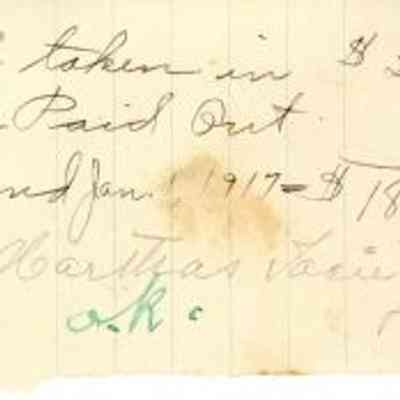 taken in $
Paid Out.
nd Jan. 1, 1917 = $ 18
Marthas Socie
o.k.